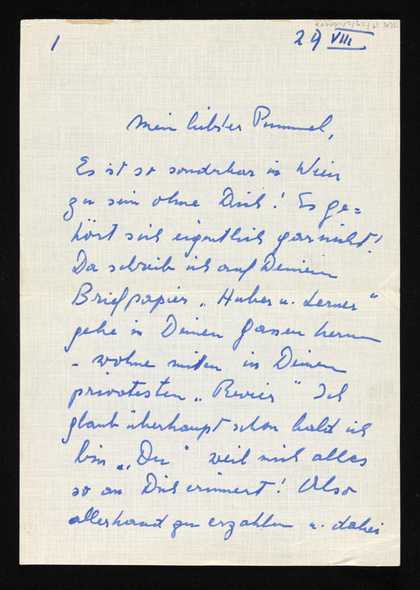 1
29 VIII
Mein liebster Pummel,
Es ist so sonderbar in Wien
zu sein ohne Dich! Es ge=
hört sich eigentlich garnicht!
Da schreib ich auf Deinem
Briefpapier „Huber u. Lerner"
gehe in Deinen Gassen herum
- wohne mitten in Deinem
privatesten „Revier" Ich
glaub überhaupt schon bald ich
bin „Du" weil mich alles
so an Dich erinnert! Also
allerhand zu erzählen u. dabei